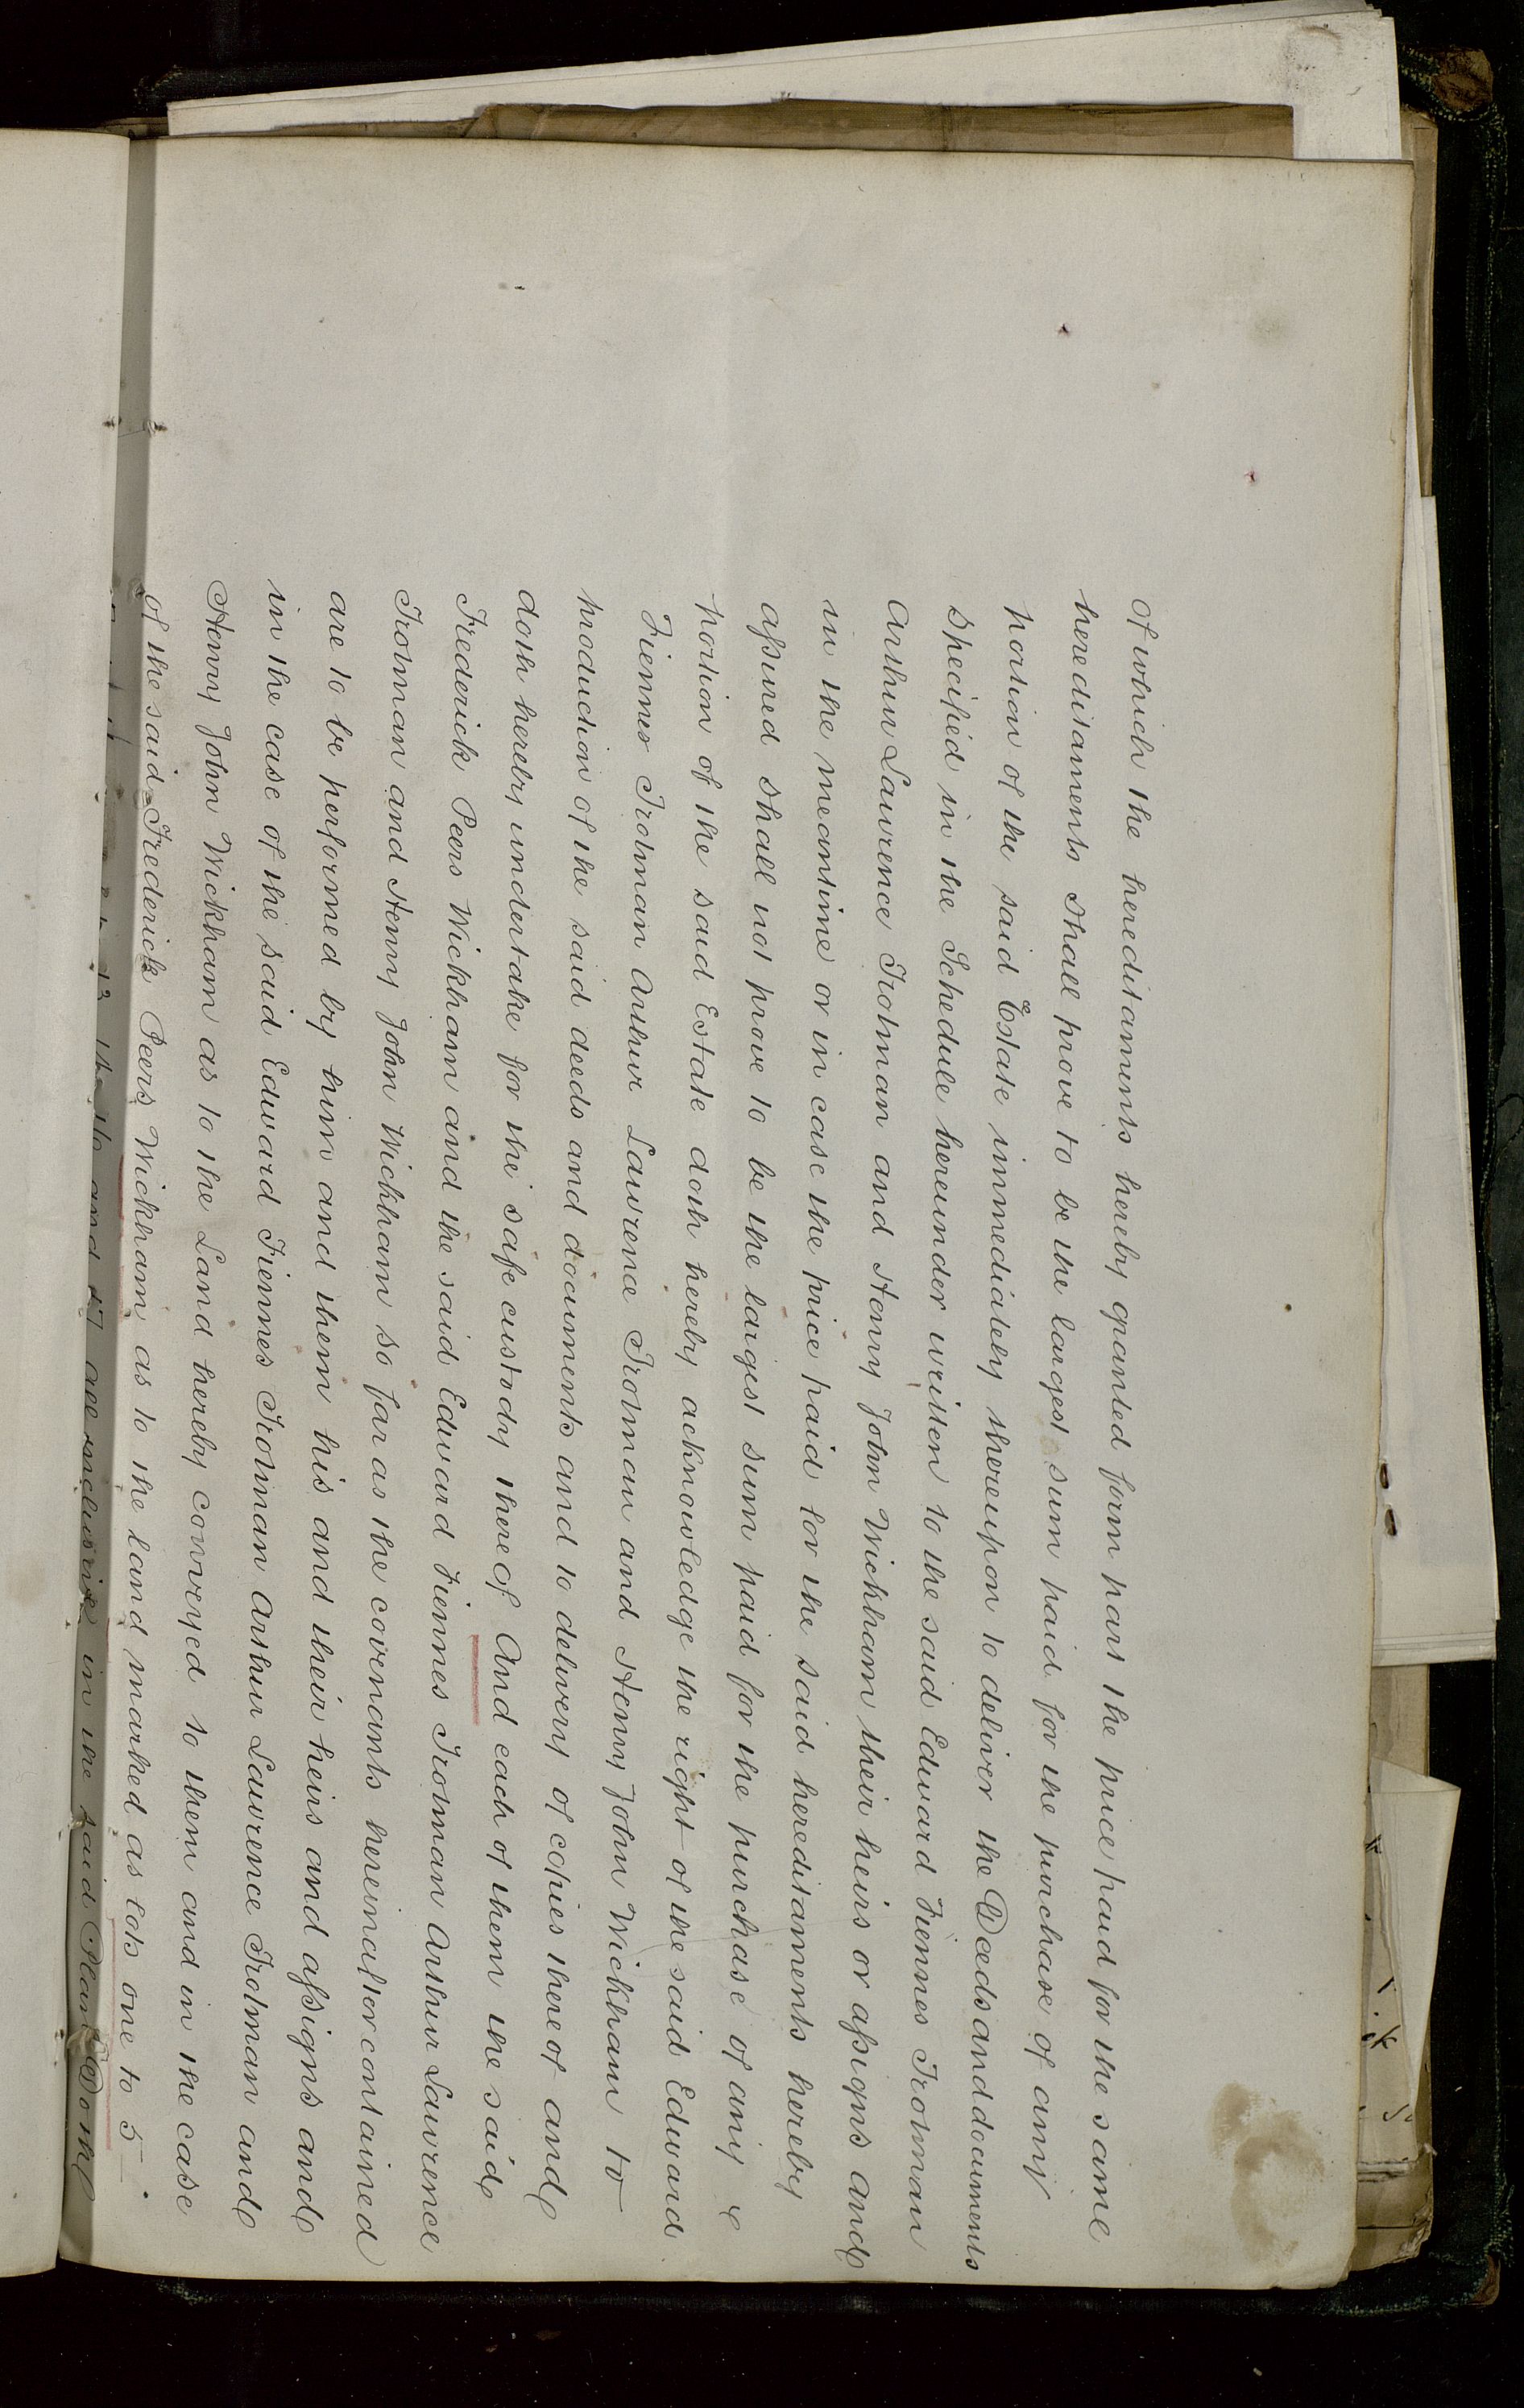 of which the hereditaments hereby granted form part the price paid for the same
hereditaments shall prove to be the largest sum paid for the purchase of any
portion of the said Estate immediately thereupon to deliver the Deeds and documents
specified in the Schedule hereunder written to the said Edward Fiennes Trotman
Arthur Lawrence Trotman and Henry John Wickham their heirs or assigns and
in the meantime or in case the price paid for the said hereditaments hereby
assured shall not prove to be the largest sum paid for the purchase of any
portion of the said Estate doth hereby acknowledge the right of the said Edward
Fiennes Trotman Arthur Lawrence Trotman and Henry John Wickham to
production of the said deeds and documents and to delivery of copies thereof and
doth hereby undertake for the safe custody thereof And each of them the said
Frederick Peers Wickham and the said Edward Fiennes Trotman Arthur Lawrence
Trotman and Henry John Wickham so far as the covenants hereinafter contained
are to be performed by him and them his and their heirs and assigns and
in the case of the said Edward Fiennes Trotman Arthur Lawrence Trotman and
Henry John Wickham as to the Land hereby conveyed to them and in the case
of the said Frederick Peers Wickham as to the land marked as lots one to 5
and 17 all inclusive in the said Plan Doth